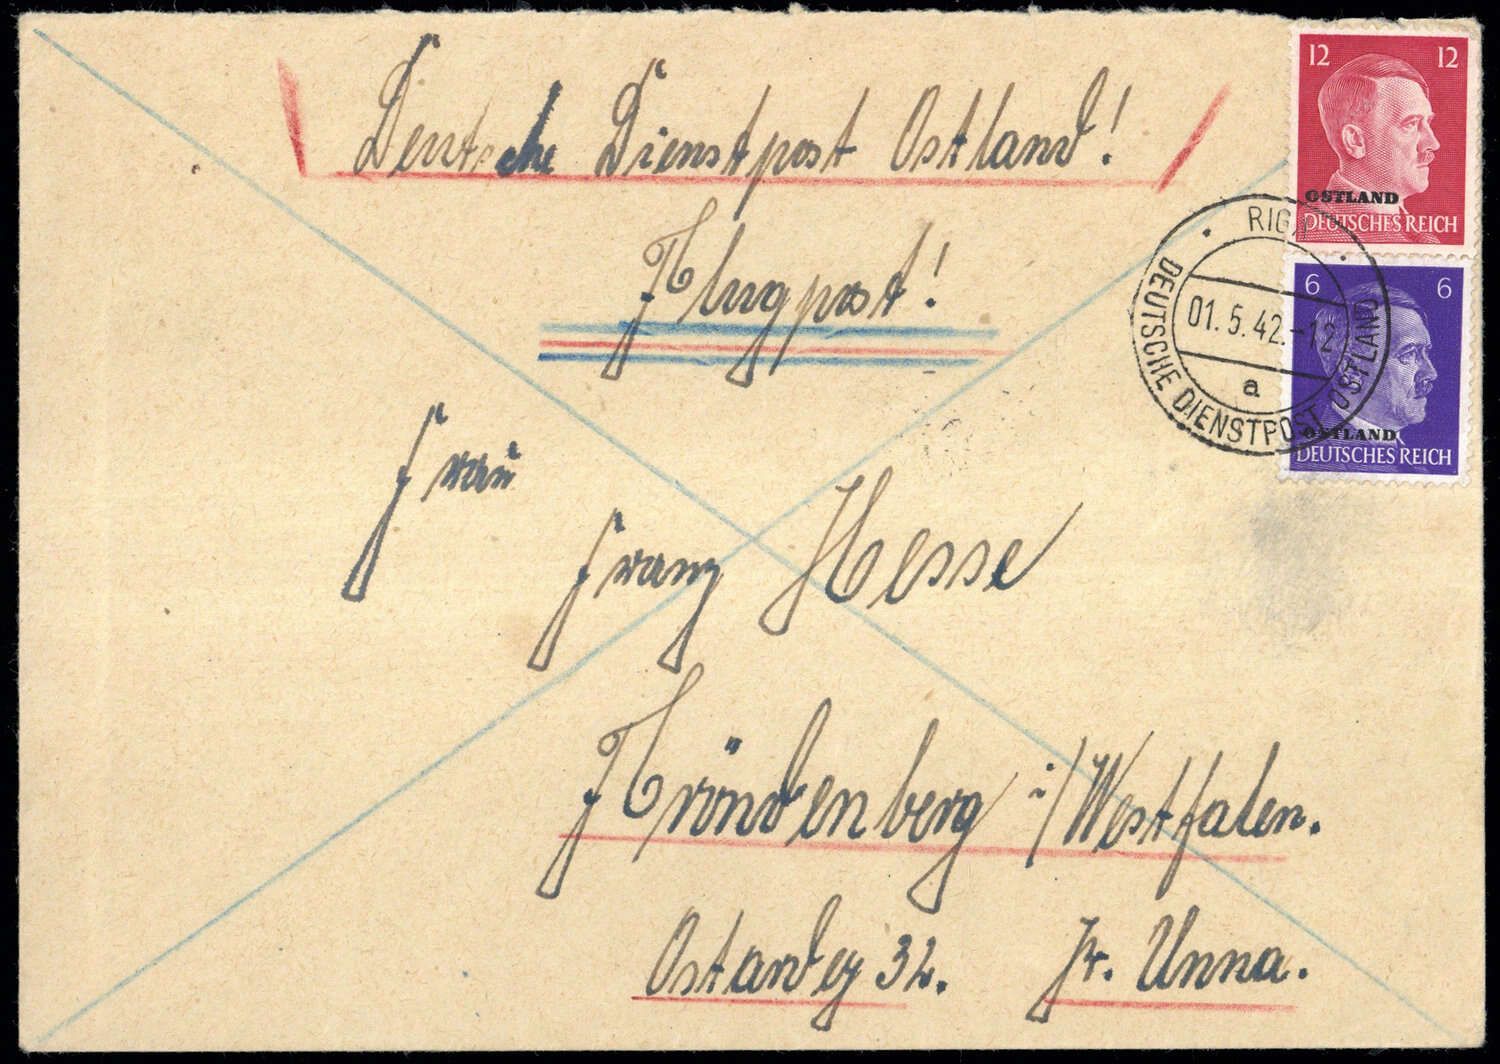 Deutsche Dienstpost Ostland!
Flugpost!
12 12
OSTLAND
DEUTSCHES REICH
6 6
OSTLAND
DEUTSCHES REICH
RIGA
01.5.42.-12
a
DEUTSCHE DIENSTPOST OSTLAND
Frau
Franz Hesse
Fröndenberg i/Westfalen.
32. Kr. Unna.